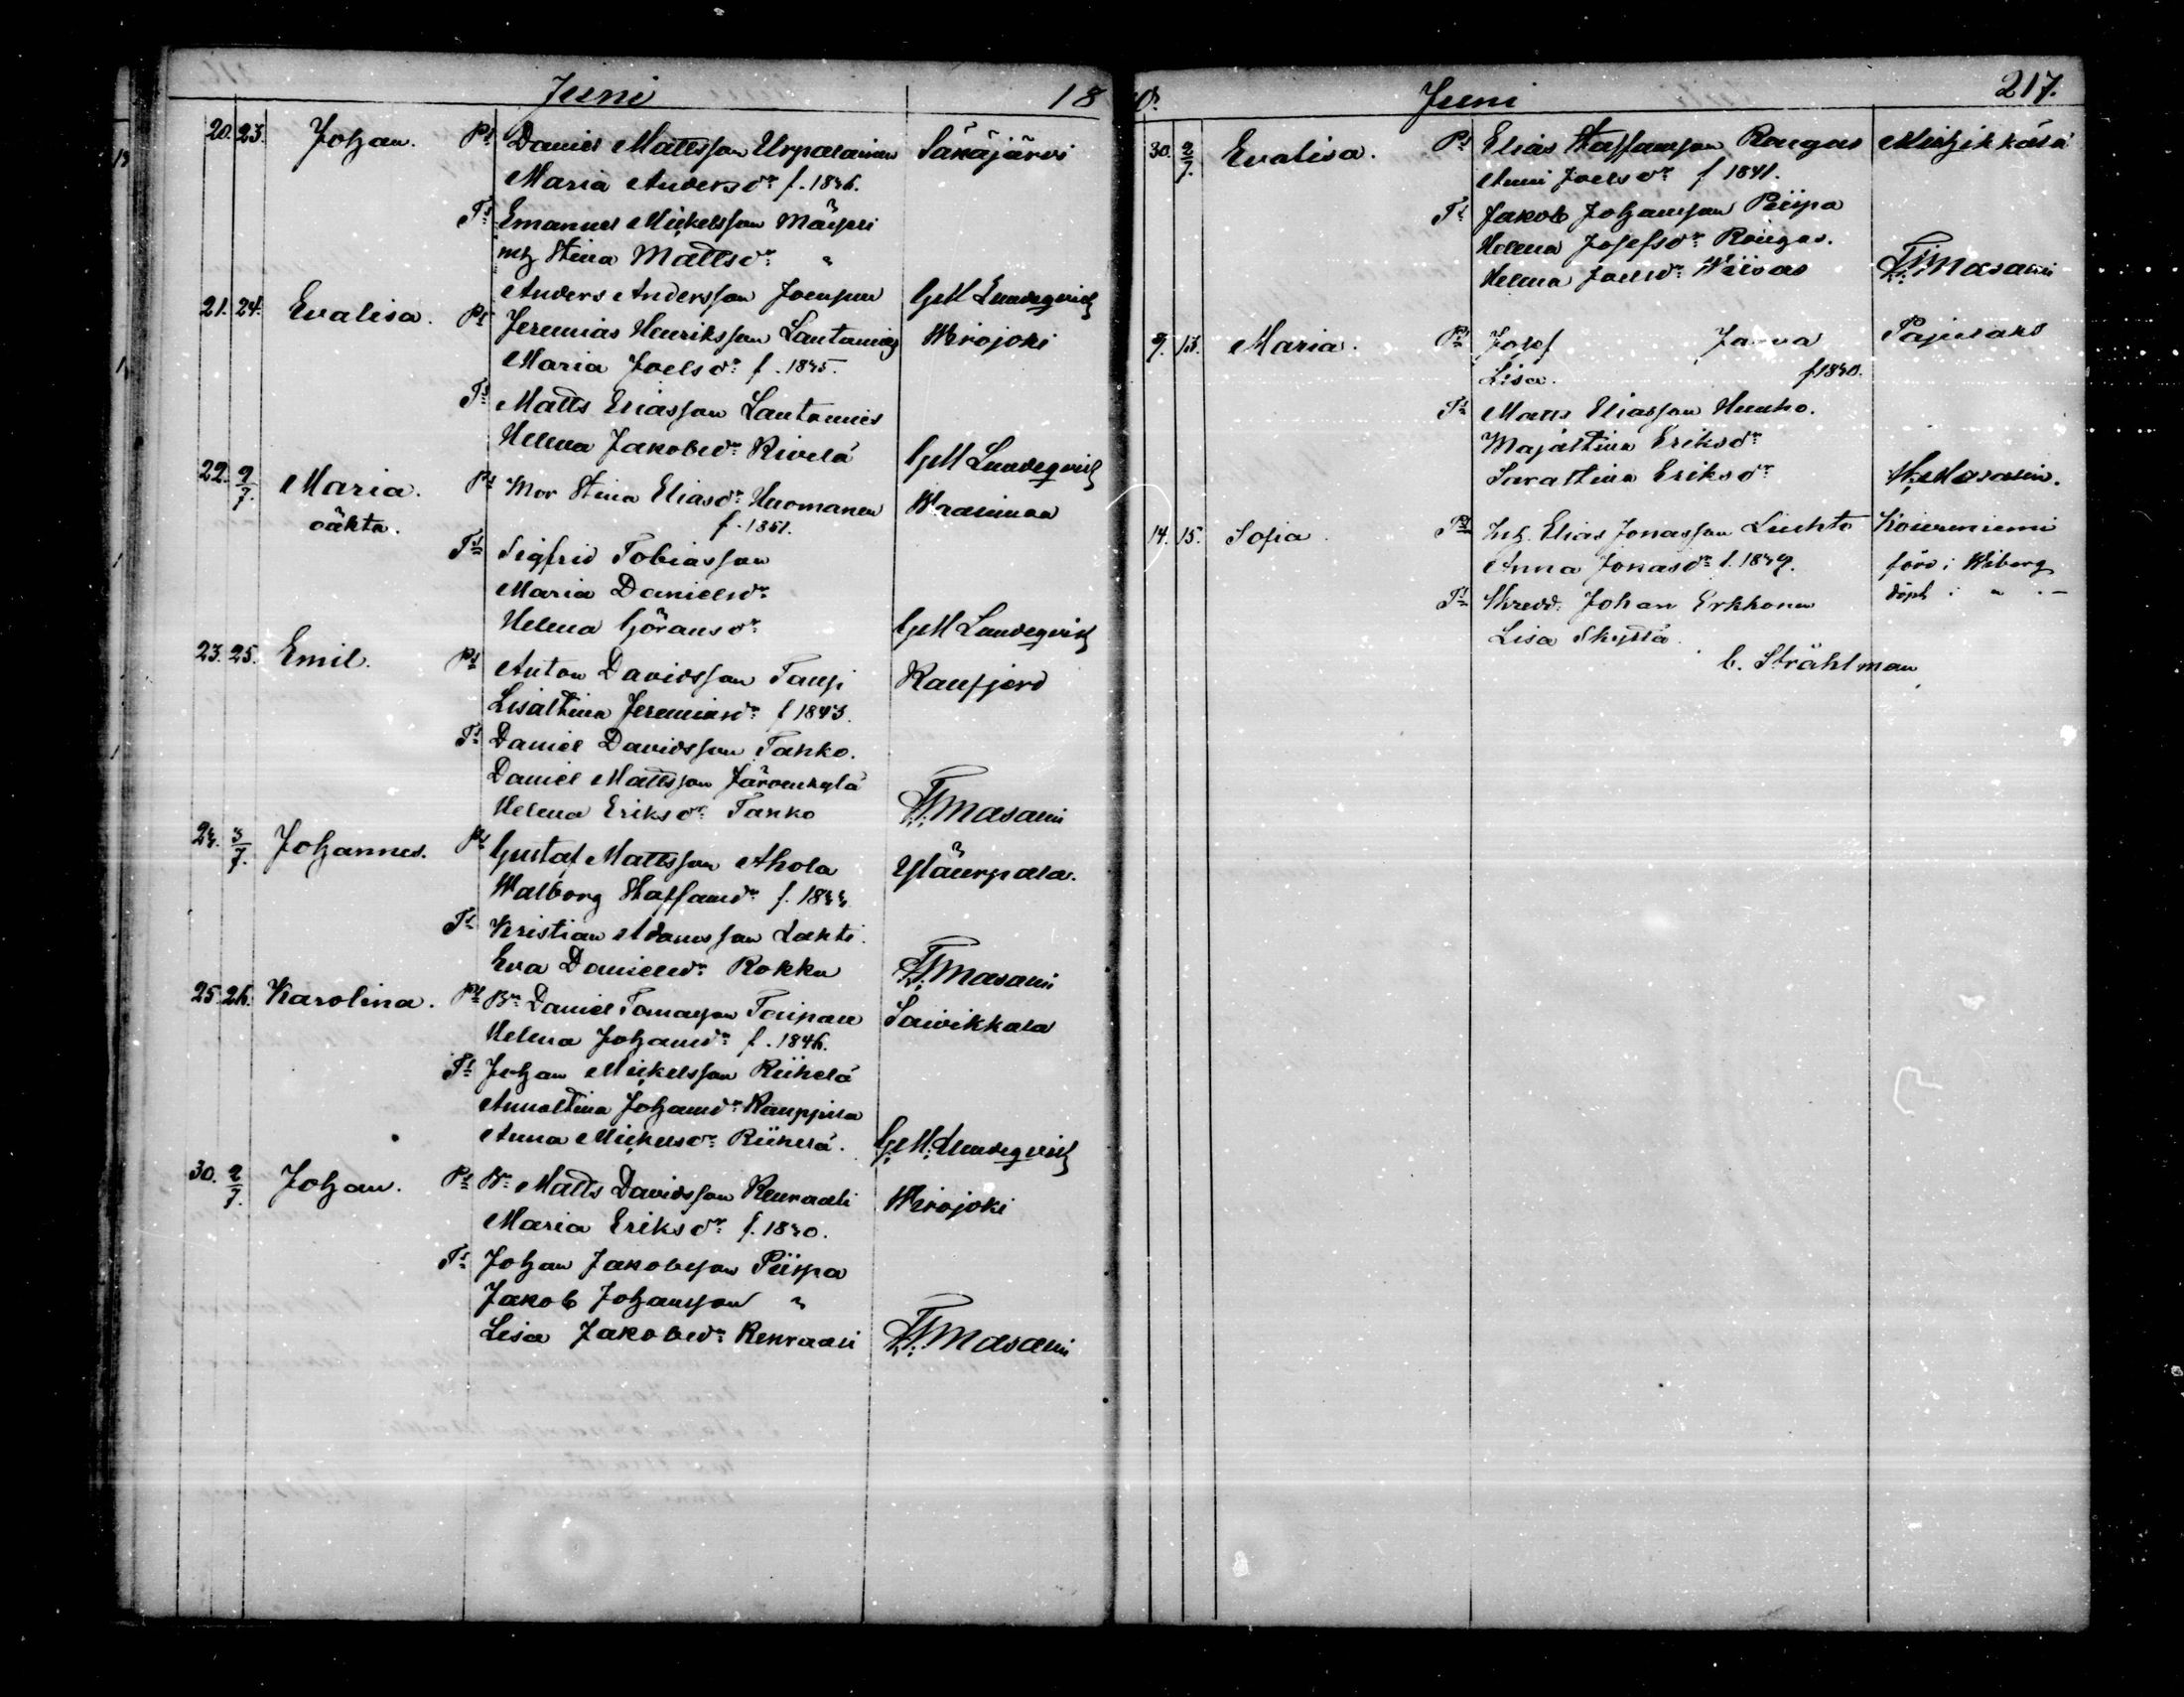 Juni 18
20. 23. Johan. Pt Daniel Mattsson Urpalainen Säkäjärvi
Maria Andersdr f. 1836.
Tt Emanuel Mickelsson Mäyrri
mh Stina Mattsdr "
Anders Andersson G M Lundeqvist
21. 24. Evalisa. Pt Jeremias Henriksson Lautamies Wirojoki
Maria Joelsdr f. 1835.
Tt Matts Eliasson Lautamies
Helena Jakobsdr Kivelä G M Lundeqvist
22. 9/7. Maria. Pt Mor Stina Eliasdr Huomanen
oäkta. f. 1851.
Tt Sigfrid Tobiasson
Maria Danielsdr
Helena Göransdr G M Lundeqvist
23. 25. Emil. Pt Anton Davidsson Ranfjerd
Lisastina Jeremiasdr f 1843.
Tt Daniel Davidsson Tanko.
Daniel Mattsson Järvenkylä
Helena Eriksdr Tanko Masalin
24. 3/7. Johannes. Pt Gustaf Mattsson Ahola Yläurpala.
Walborg Staffansdr f. 1844
Tt Kristian Adamsson Lahti.
Eva Danielsdr Rokka Masalin
25. 26. Karolina. Pt Bn Daniel Tomasson Taipale Saivikkala
Helena Johansdr f. 1846.
Tt Johan Mickelsson Riihelä
Annastina Johansdr Kauppila
Anna Mickelsdr Riihelä. G. M. Lundeqvist
30. 2/7. Johan. Pt Bn Matts Davidsson Kenraali Wirojoki
Maria Eriksdr f. 1830.
Tt Johan Jakobsson Piispa
Jakob Johansson "
Lisa Jakobsdr Kenraali Masalin
0. Juni 217.
30. 2/7. Evalisa. Pt Elias Staffansson Rongas Miehikkälä
Anni Joelsdr f 1841.
Tt Jakob Johansson Piispa
Helena Josefsdr Rongas.
Helena Joelsdr Masalin
9. 13. Maria. Pt Josef Pajulaks
Lisa. f 1830.
Tt Matts Eliasson
Majastina Eriksdr
Sarastina Eriksdr Masalin.
14. 15. Sofia. Pt Elias Jonasson Luhto Koivuniemi
Anna Jonasdr f. 1839. född i Wiborg
Tt Skredd. Johan Erkkonen döpt i " . –
Lisa Skyttä.
C. Stråhlman